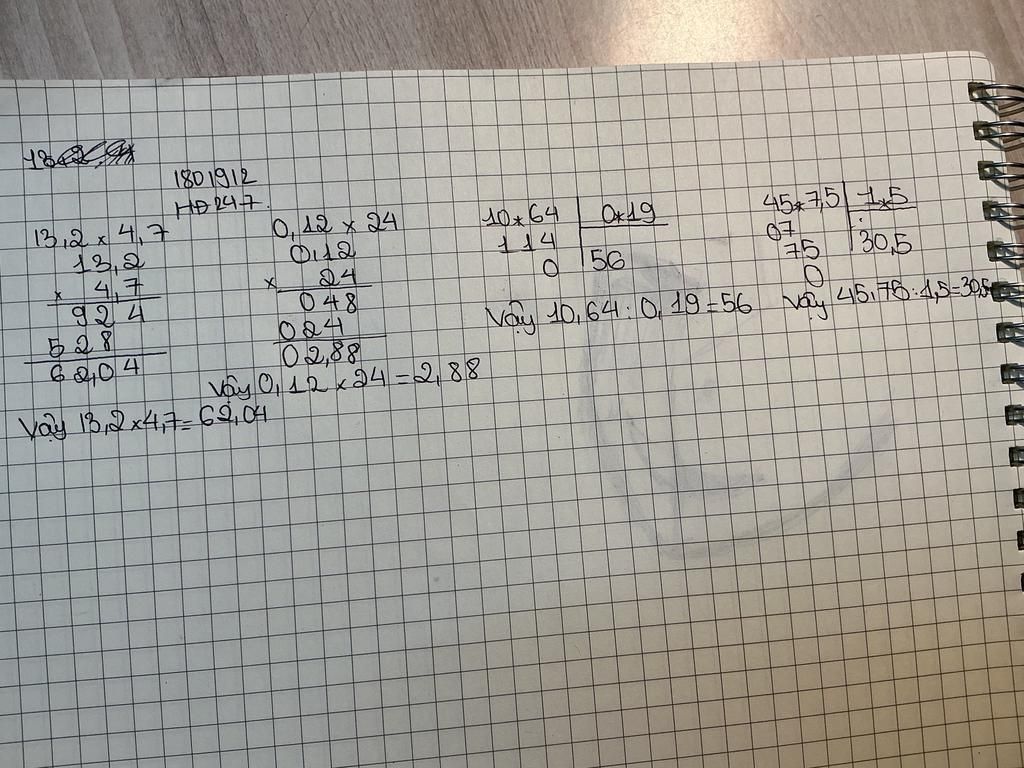 1801912
HĐ247.
13,2 x 4,7
13,2
x 4,7
924
528
62,04
Vậy 13,2 x 4,7 = 62,04
0,12 x 24
0,12
x 24
048
024
02,88
Vậy 0,12 x 24 = 2,88
10*64 0*19
114 56
0
Vậy 10,64 : 0,19 = 56
45*7,5 1*5
07 30,5
75
0
Vậy 45,75 : 1,5 = 30,5